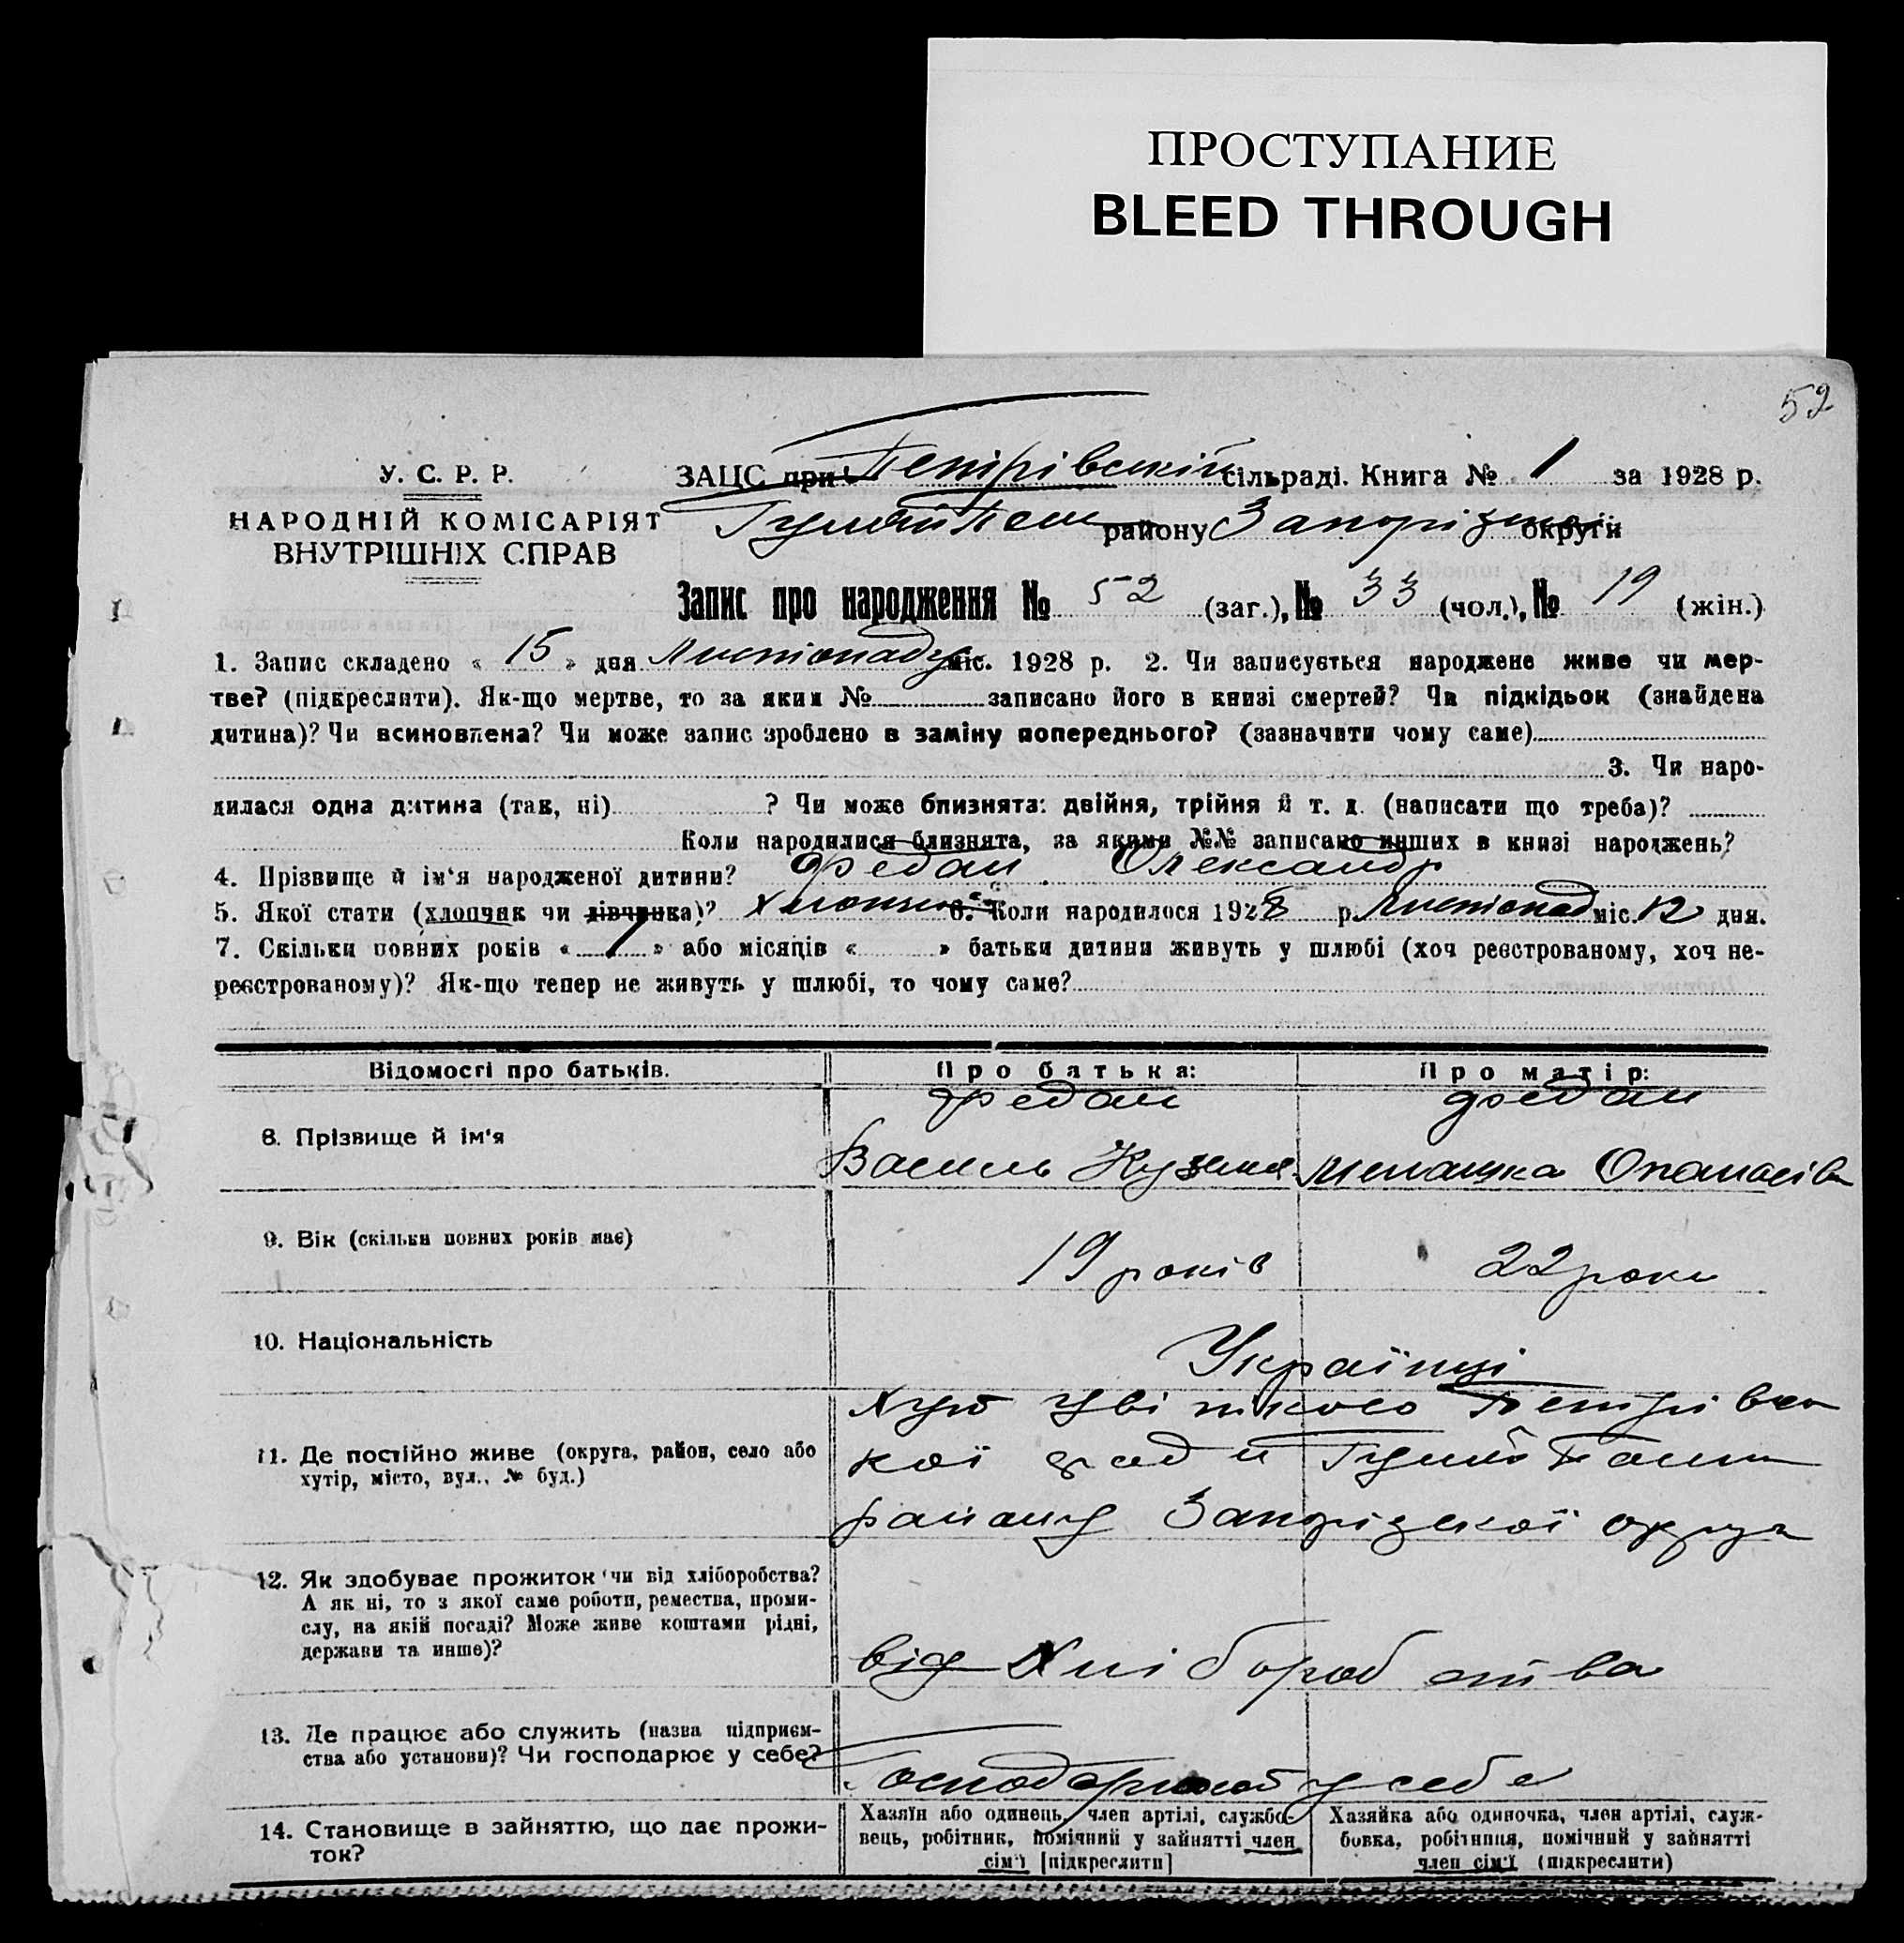 ПРОСТУПАНИЕ
BLEED THROUGH
52
У. С. Р. Р.
НАРОДНІЙ КОМІСАРІЯТ
ВНУТРІШНІХ СПРАВ
ЗАЦС при Петрівській сільраді. Книга № 1 за 1928 р.
району округи
Запис про народження № 52 (заг.), № 33 (чол.), № 19 (жін.)
1. Запис складено « 15 » дня Листопаду міс. 1928 р. 2. Чи записується народжене живе чи мер-
тве? (підкреслити). Як-що мертве, то за яким № записано його в книзі смертей? Чи підкідьок (знайдена
дитина)? Чи всиновлена? Чи може запис зроблено в заміну попереднього? (зазначити чому саме)
3. Чи наро-
дилася одна дитина (так, ні) ? Чи може близнята: двійня, трійня й т. д. (написати що треба)?
Коли народилися близнята, за якими №№ записано инших в книзі народжень?
4. Прізвище й ім‘я народженої дитини? Федан Олександр
5. Якої стати (хлопчик чи дівчинка)? Хлопчик 6. Коли народилося 1928 р. Листопад міс. 12 дня.
7. Скільки повних років « 1 » або місяців « » батьки дитини живуть у шлюбі (хоч реєстрованому, хоч не-
реєстрованому)? Як-що тепер не живуть у шлюбі, то чому саме?
Відомості про батьків. Про батька: Про матір:
Федан Федан
8. Прізвище й ім‘я
Василь Опанасів
9. Вік (скільки повних років має) 19 років 22 роки
10. Національність Українці
11. Де постійно живе (округа, район, село або
хутір, місто, вул., № буд.)
Хут Петрівсь
кої ради
району Запорізької округи
12. Як здобуває прожиток (чи від хліборобства?
А як ні, то з якої саме роботи, ремества, проми-
слу, на якій посаді? Може живе коштами рідні,
держави та инше)?
від Хліборобства
13. Де працює або служить (назва підприєм-
ства або установи)? Чи господарює у себе?
у себе
14. Становище в зайняттю, що дає прожи-
ток?
Хазяїн або одинець, член артілі, службо-
вець, робітник, помічний у зайнятті член
сім‘ї [підкреслити]
Хазяйка або одиночка, член артілі, служ-
бовка, робітниця, помічний у зайнятті
член сім‘ї (підкреслити)